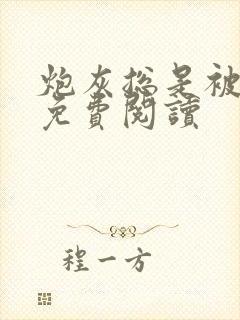 炮灰总是被
免費閱讀
程一方